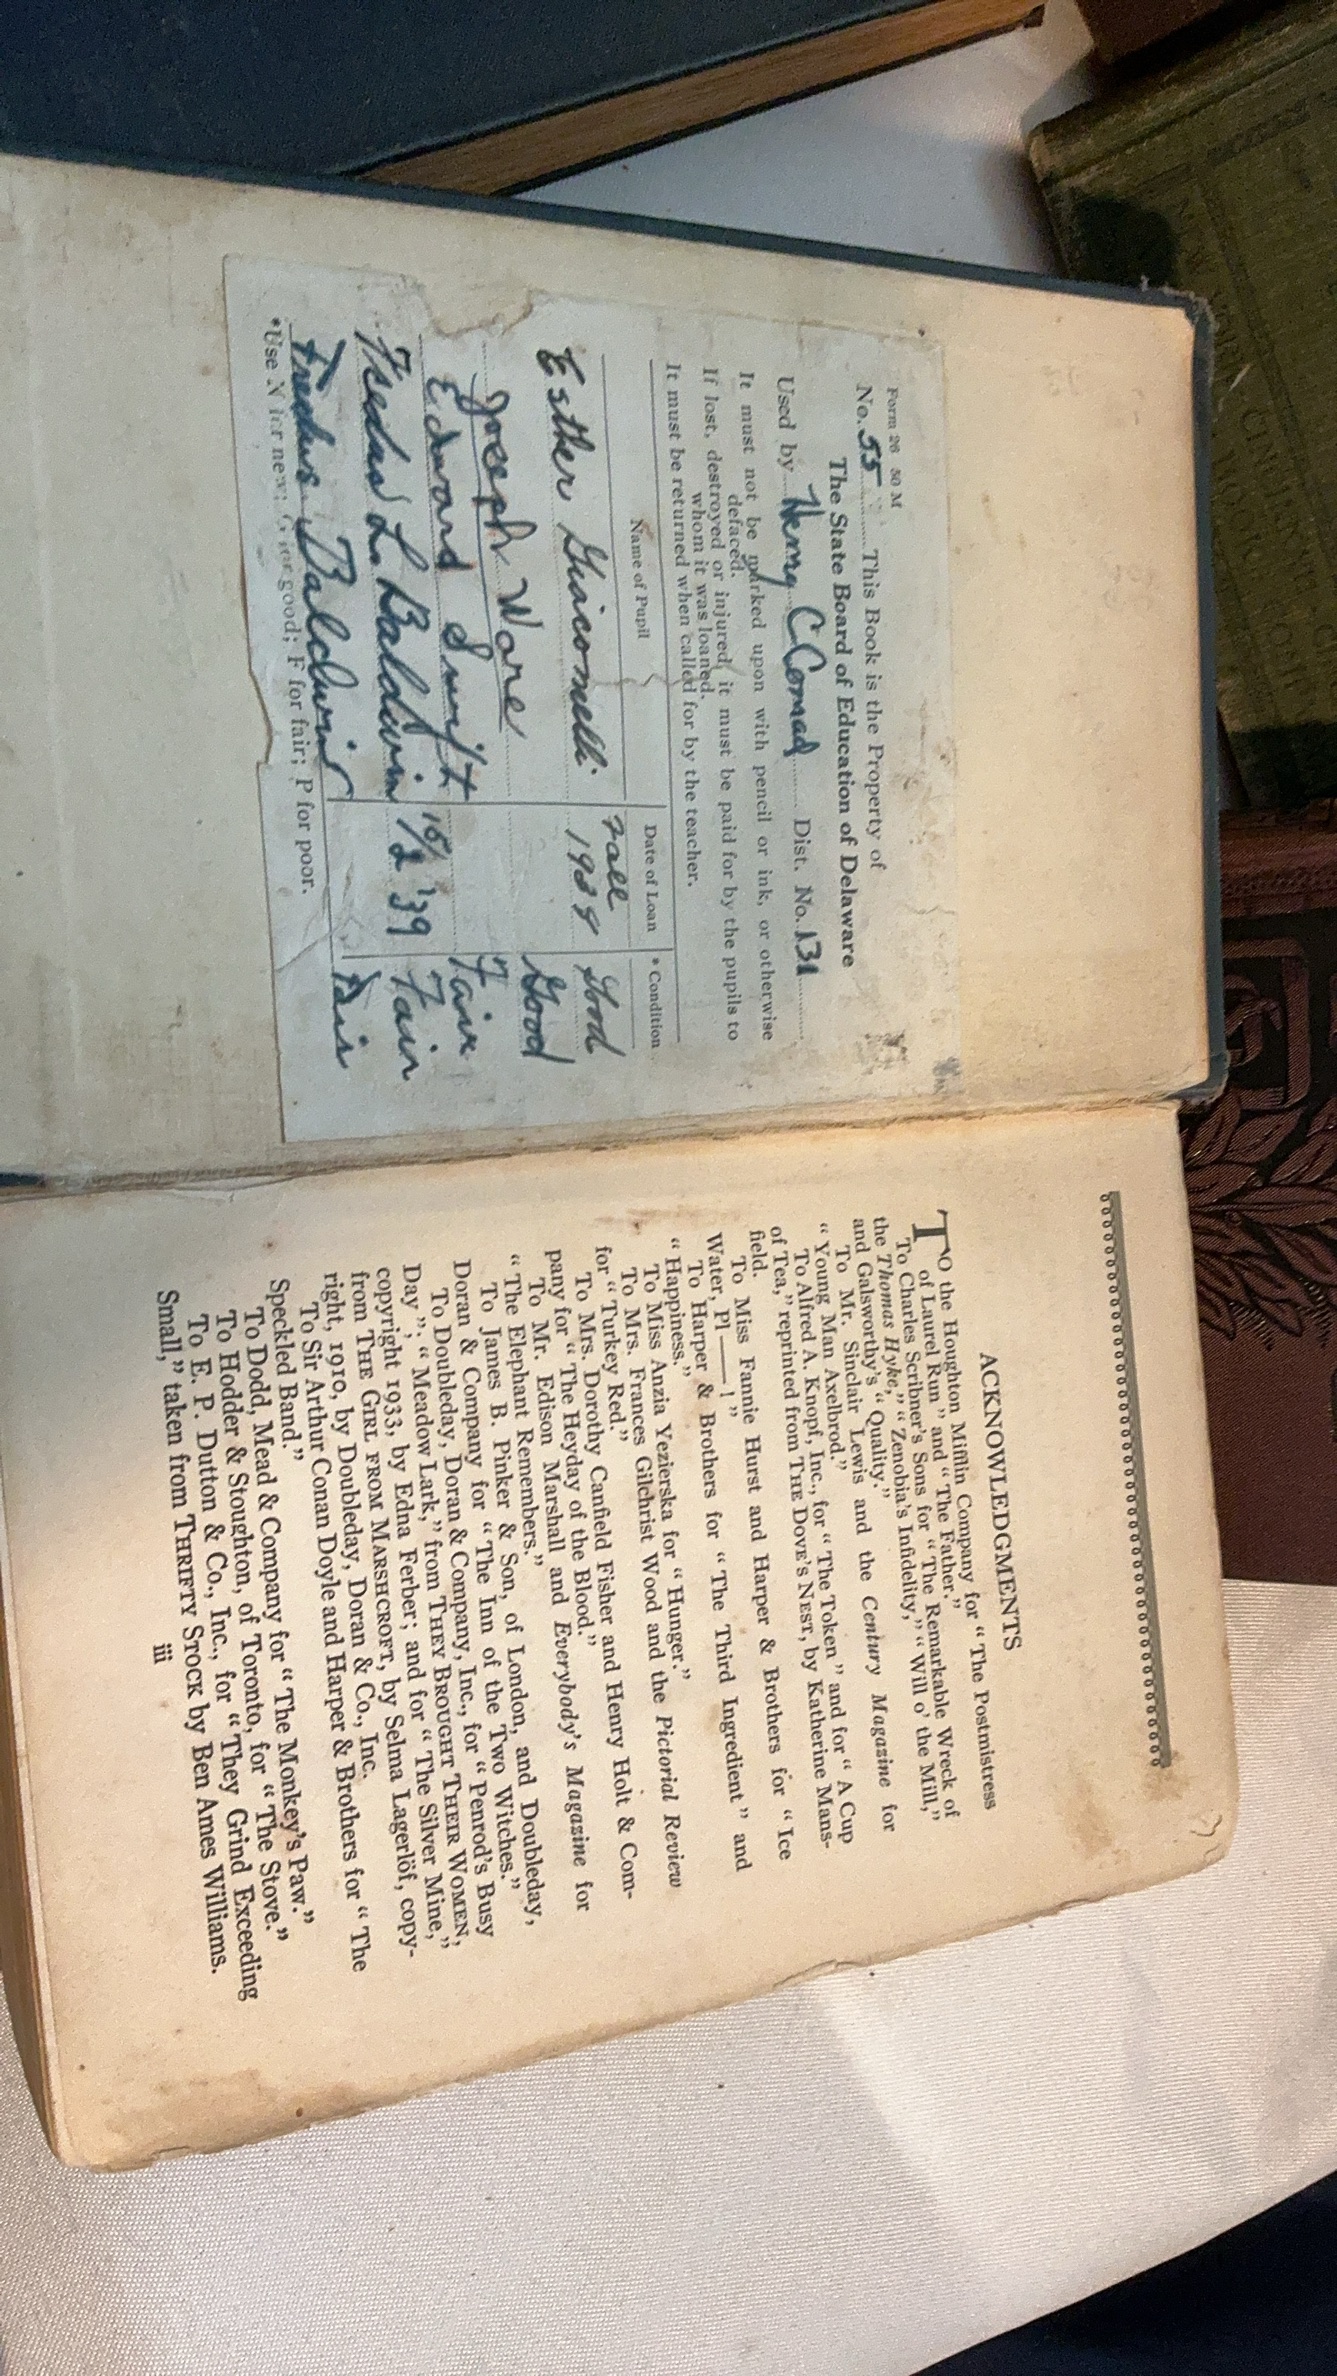 Form 26 50 M
No. 55 This Book is the Property of
The State Board of Education of Delaware
Used by Henry C Conrad Dist. No. 131
It must not be marked upon with pencil or ink, or otherwise
defaced.
If lost, destroyed or injured, it must be paid for by the pupils to
whom it was loaned.
It must be returned when called for by the teacher.
Name of Pupil Date of Loan *Condition
Fall
Esther Giacomelli Good
Joseph Ware Good
Edward Swift Fair
L. Baldwin '39 Fair
Baldwin Fair
*Use N for new; G for good; F for fair; P for poor.
ACKNOWLEDGMENTS
To the Houghton Mifflin Company for “The Postmistress
of Laurel Run” and “The Father.”
To Charles Scribner's Sons for “The Remarkable Wreck of
the Thomas Hyke,” “Zenobia's Infidelity,” “Will o' the Mill,”
and Galsworthy's “Quality.”
To Mr. Sinclair Lewis and the Century Magazine for
“Young Man Axelbrod.”
To Alfred A. Knopf, Inc., for “The Token” and for “A Cup
of Tea,” reprinted from THE DOVE'S NEST, by Katherine Mans-
field.
To Miss Fannie Hurst and Harper & Brothers for “Ice
Water, Pl——!”
To Harper & Brothers for “The Third Ingredient” and
“Happiness.”
To Miss Anzia Yezierska for “Hunger.”
To Mrs. Frances Gilchrist Wood and the Pictorial Review
for “Turkey Red.”
To Mrs. Dorothy Canfield Fisher and Henry Holt & Com-
pany for “The Heyday of the Blood.”
To Mr. Edison Marshall and Everybody's Magazine for
“The Elephant Remembers.”
To James B. Pinker & Son, of London, and Doubleday,
Doran & Company for “The Inn of the Two Witches.”
To Doubleday, Doran & Company, Inc., for “Penrod's Busy
Day”; “Meadow Lark,” from THEY BROUGHT THEIR WOMEN,
copyright 1933, by Edna Ferber; and for “The Silver Mine,”
from THE GIRL FROM MARSHCROFT, by Selma Lagerlöf, copy-
right, 1910, by Doubleday, Doran & Co., Inc.
To Sir Arthur Conan Doyle and Harper & Brothers for “The
Speckled Band.”
To Dodd, Mead & Company for “The Monkey's Paw.”
To Hodder & Stoughton, of Toronto, for “The Stove.”
To E. P. Dutton & Co., Inc., for “They Grind Exceeding
Small,” taken from THRIFTY STOCK by Ben Ames Williams.
iii